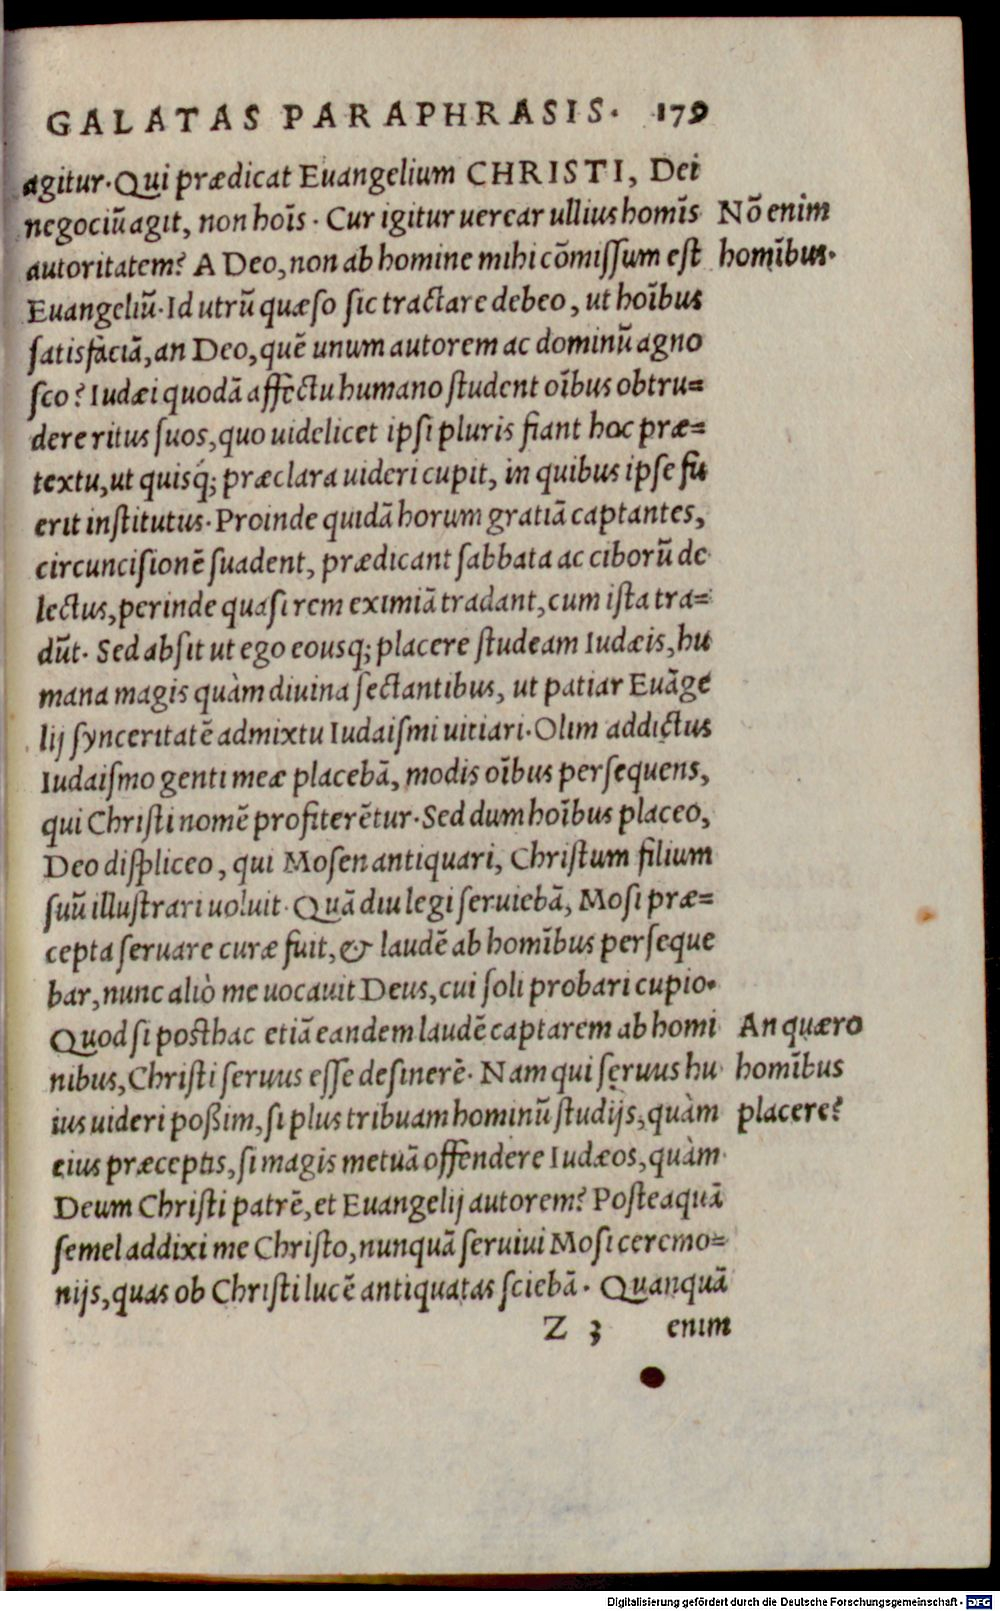 GALATAS PARAPHRASIS. 179
agitur. Qui prædicat Euangelium CHRISTI, Dei
negociū agit, non hoīs. Cur igitur uerear ullius homīs
Nō enim
autoritatem? A Deo, non ab homine mihi cōmissum est
homībus.
Euangeliū. Id utrū quæso sic tractare debeo, ut hoībus
satisfaciā, an Deo, quē unum autorem ac dominū agno
sco? Iudæi quodā affectu humano student oībus obtru=
dere ritus suos, quo uidelicet ipsi pluris fiant hoc præ=
textu, ut quisq́; præclara uideri cupit, in quibus ipse fu
erit institutus. Proinde quidā horum gratiā captantes,
circuncisionē suadent, prædicant sabbata ac ciborū de
lectus, perinde quasi rem eximiā tradant, cum ista tra=
dūt. Sed absit ut ego eousq; placere studeam Iudæis, hu
mana magis quàm diuina sectantibus, ut patiar Euāge
lij synceritatē admixtu Iudaismi uitiari. Olim addictus
Iudaismo genti meæ placebā, modis oībus persequens,
qui Christi nomē profiterētur. Sed dum hoībus placeo,
Deo displiceo, qui Mosen antiquari, Christum filium
suū illustrari uoluit. Quādiu legi seruiebā, Mosi præ=
cepta seruare curæ fuit, & laudē ab homībus perseque
bar, nunc aliò me uocauit Deus, cui soli probari cupio.
Quod si posthac etiā eandem laudē captarem ab homi
An quæro
nibus, Christi seruus esse desinerē. Nam qui seruus hu
homībus
ius uideri poßim, si plus tribuam hominū studijs, quàm
placere?
eius præceptis, si magis metuā offendere Iudæos, quàm
Deum Christi patrē, et Euangelij autorem? Posteaquā
semel addixi me Christo, nunquā seruiui Mosi ceremo=
nijs, quas ob Christi lucē antiquatas sciebā. Quanquā
Z 3 enim
Digitalisierung gefördert durch die Deutsche Forschungsgemeinschaft - DFG